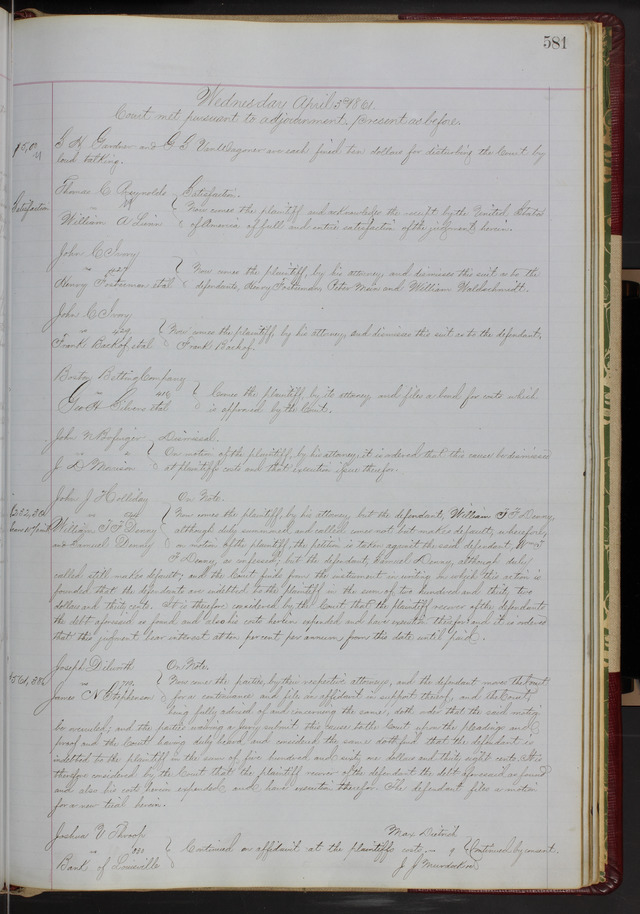 581
Wednesday April 3rd 1861.
Court met pursuant to adjournment. Present as before.
G. H. Gardner and G. G. are each fined ten dollars for disturbing the Court by
loud talking.
Thomas C. Reynolds Satisfaction.
Satisfaction
Now comes the plaintiff and acknowledges the receipt by the United States
William A. Linn of America of full and entire satisfaction of the judgment herein.
John C. Ivory
Now comes the plaintiff, by his attorney, and dismisses this suit as to the
Henry etal defendants, Henry Peter and William
John C. Ivory
429 Now comes the plaintiff, by his attorney, and dismisses this suit as to the defendant,
Frank Backof etal Frank Backof.
Boston Belting Company
416 Comes the plaintiff, by its attorney and files a bond for costs which
Geo. H. etal is approved by the Court.
John N. Bofinger Dismissal.
On motion of the plaintiff, by his attorney, it is ordered that this cause be dismissed
J. D. at plaintiffs costs and that execution issue therefor.
John J. Holliday On Note.
$232,30c Now comes the plaintiff, by his attorney, but the defendant, William T. F. Denny,
William T. F. Denny although duly summoned and called comes not but makes default; wherefore,
and Samuel Denny on motion of the plaintiff, the petition is taken against the said defendant, Wm. T.
F. Denny, as confessed; but the defendant, Samuel Denny, although duly
called still makes default; and the Court finds from the instrument in writing on which this action is
founded that the defendants are indebted to the plaintiff in the sum of two hundred and thirty two
dollars and thirty cents. It is therefore considered by the Court that the plaintiff recover of the defendants
the debt aforesaid so found and also his costs herein expended and have execution therefor and it is ordered
that this judgment bear interest at ten per cent per annum from this date until paid.
Joseph Dilworth On Note.
$561,38c Now come the parties, by their respective attorneys, and the defendant moves the Court
James N. Stephenson for a continuance and files an affidavit in support thereof, and the Court,
being fully advised of and concerning the same, doth order that the said motion
be overruled; and the parties waiving a Jury submit this cause to the Court upon the pleadings and
proof and the Court having duly heard and considered the same doth find that the defendant is
indebted to the plaintiff in the sum of five hundred and sixty one dollars and thirty eight cents. It is
therefore considered by the Court that the plaintiff recover of the defendant the debt aforesaid so found
and also his costs herein expended and have execution therefor. The defendant files a motion
for a new trial herein.
Joshua V. Throop Max Dietrich
Continued on affidavit at the plaintiffs costs. Continued by consent.
Bank of Louisville J. J. Murdoch